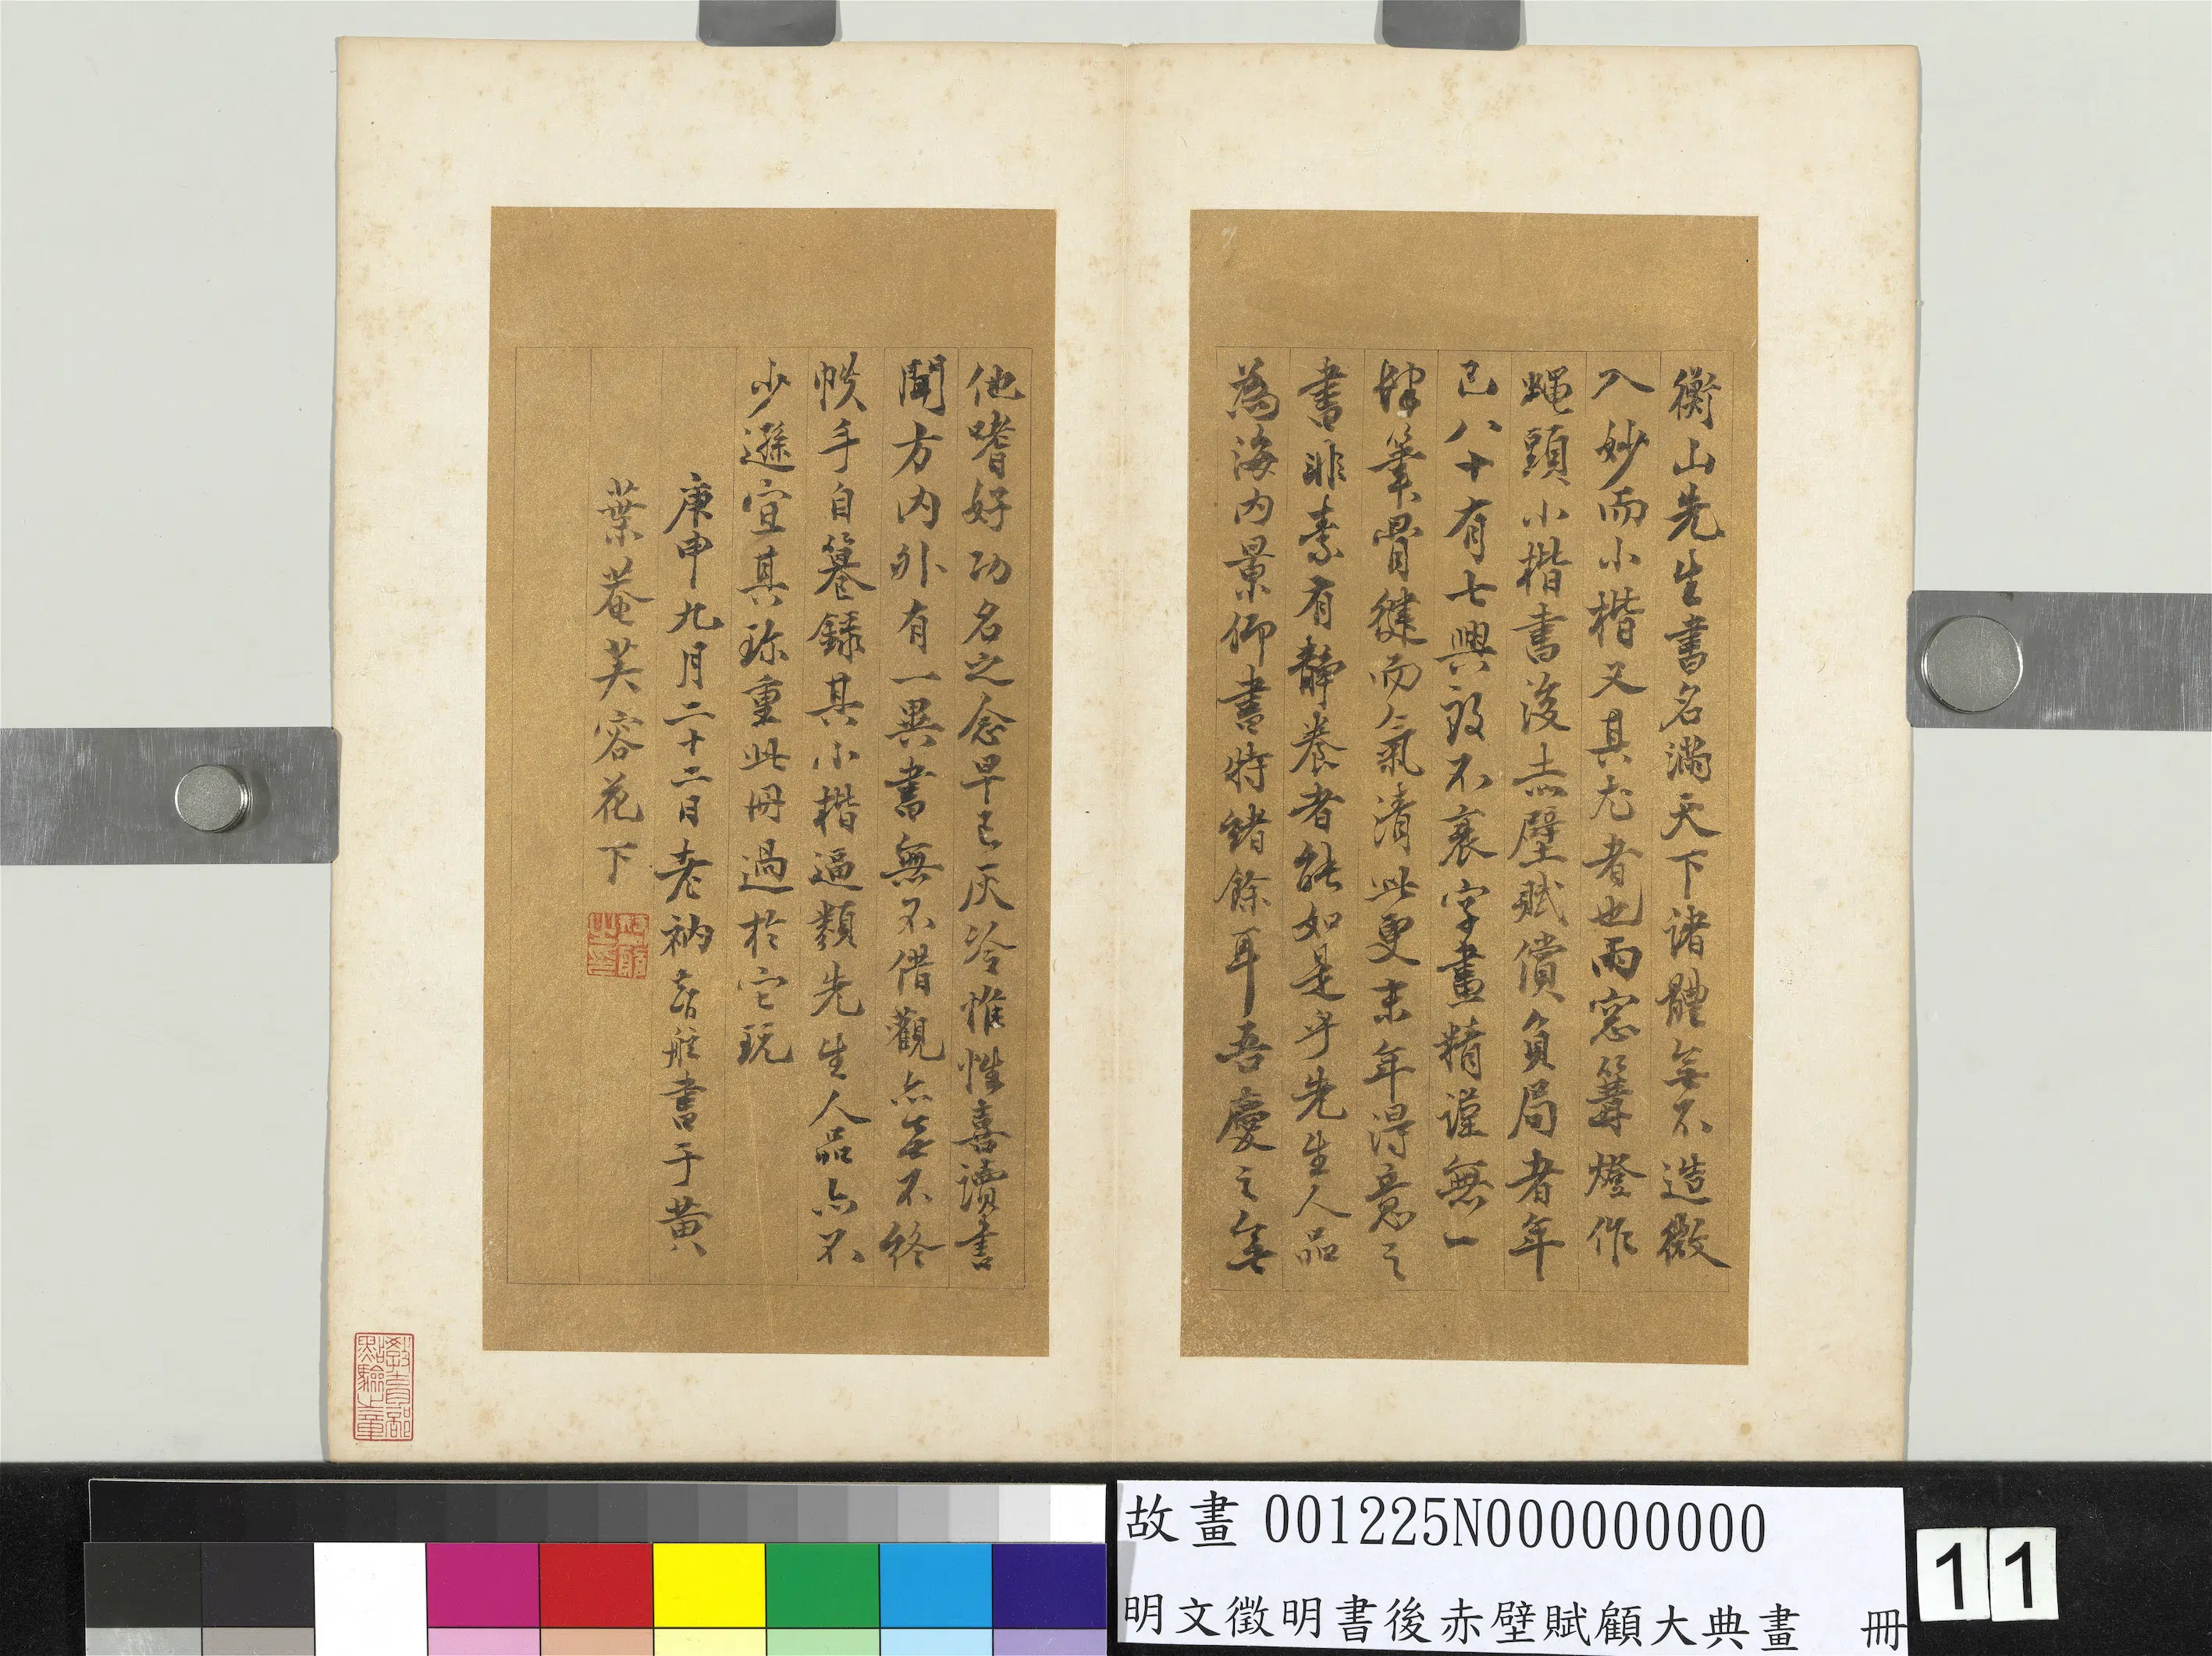 衡山先生書名滿天下諸體無不造微
入妙而小楷又其尤者也雨窓篝燈作
蠅頭小楷書後赤壁賦償負局者年
已八十有七興致不衰字畫精謹無一
肄筆骨健而氣清此更末年得意之
書非素有靜養者能如是乎先生人品
為海內景仰書特緒餘耳吾慶之無
他嗜好功名之念早已灰冷惟性喜讀書
聞方內外有一異書無不借觀亦無不終
帙手自纂錄其小楷逼類先生人品亦不
少遜宜其珍重此冊過於它玩
庚申九月二十二日老衲 書于黃
葉菴芙容花下
教育部
點驗之章
故畫 001225N000000000
明文徵明書後赤壁賦顧大典畫 冊
11